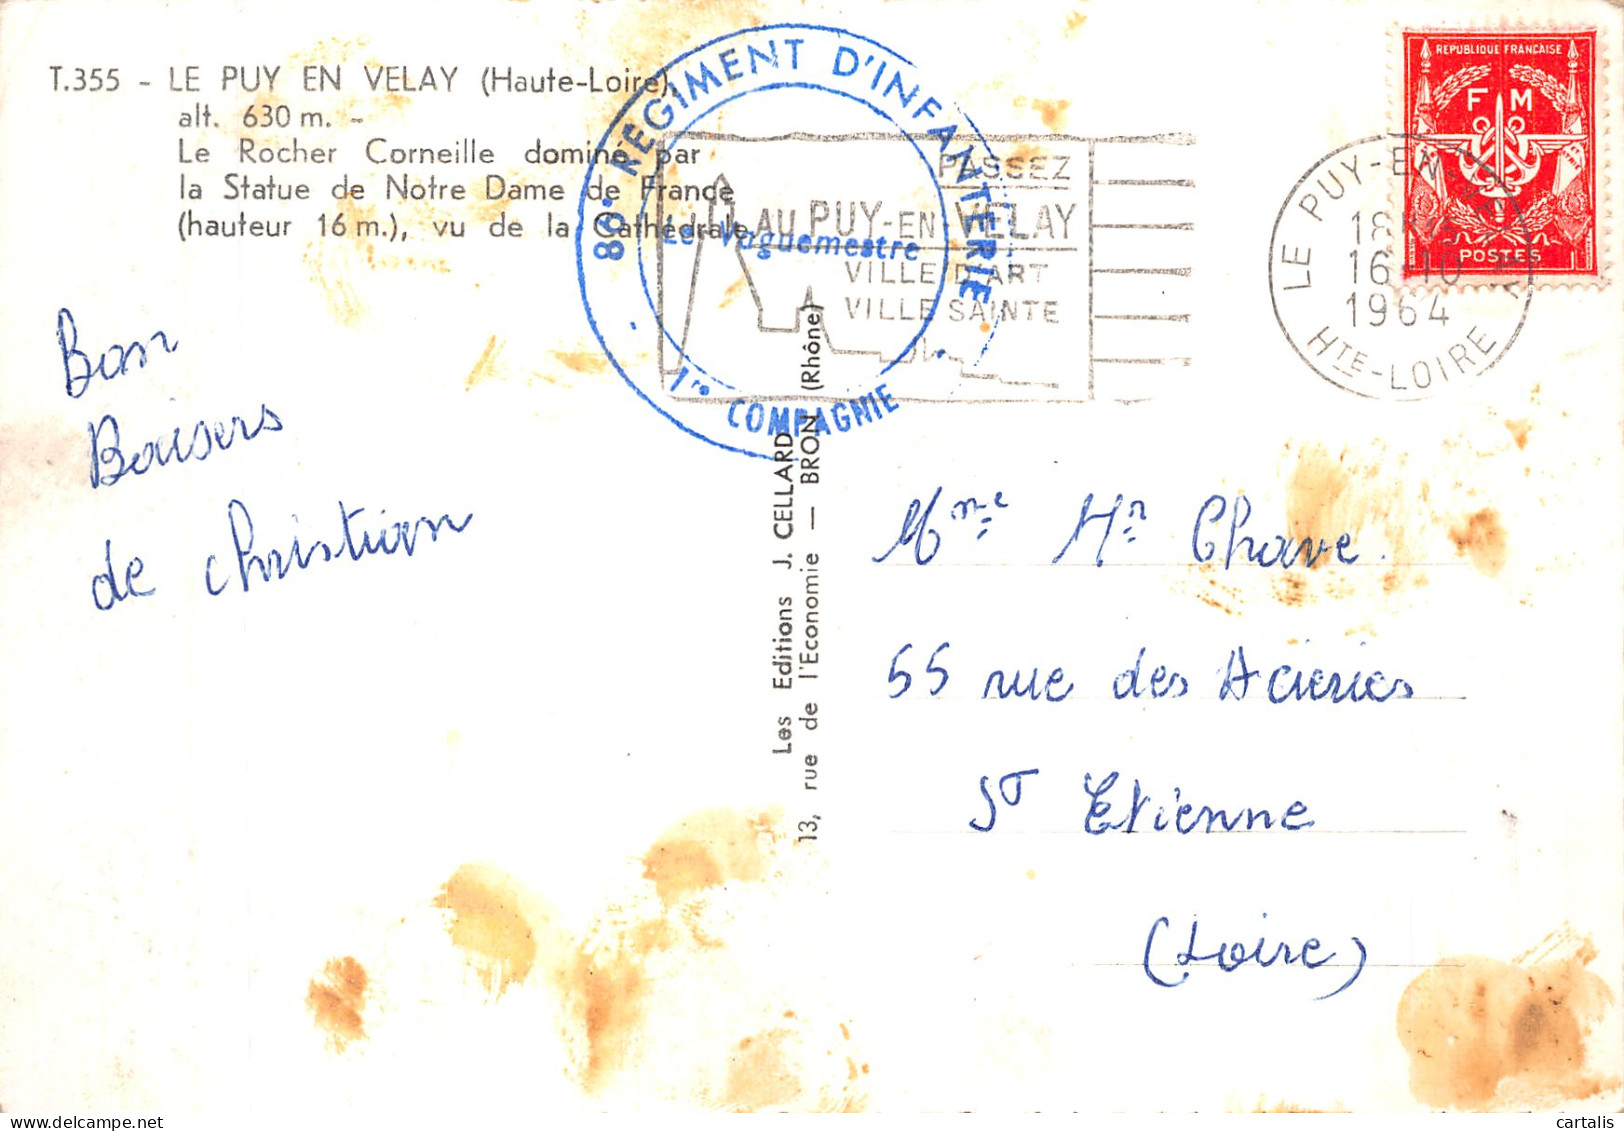 T.355 - LE PUY EN VELAY (Haute-Loire),
alt. 630 m. -
Le Rocher Corneille dominé par
la Statue de Notre Dame de France
(hauteur 16 m.), vu de la Cathédrale.
80e RÉGIMENT D'INFANTERIE
Le Vaguemestre
1re COMPAGNIE
PASSEZ
AU PUY-EN VELAY
VILLE D'ART
VILLE SAINTE
REPUBLIQUE FRANÇAISE
F M
POSTES
LE PUY-EN-VELAY
18H
16-10
1964
HTE-LOIRE
Bon
Baisers
de christian
Les Editions J. CELLARD
13, rue de l'Economie — BRON (Rhône)
Mme Hn Chave
55 rue des Acieries
ST Etienne
(Loire)
cartalis
www.delcampe.net